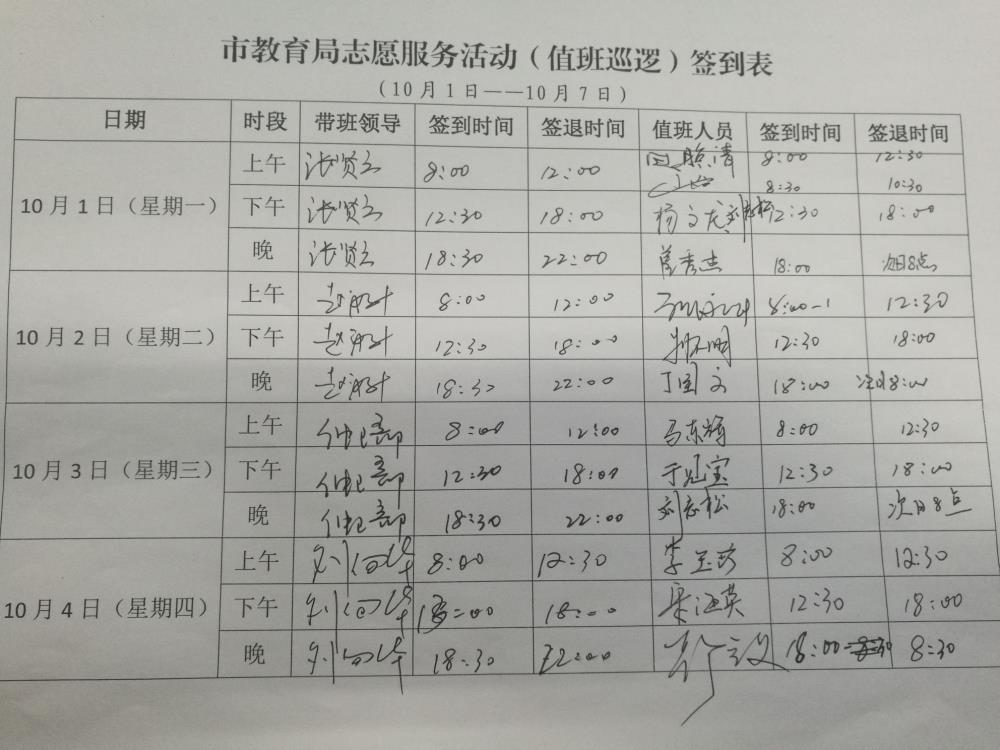 市教育局志愿服务活动（值班巡逻）签到表
（10月1日——10月7日）
日期 时段 带班领导 签到时间 签退时间 值班人员 签到时间 签退时间
10月1日（星期一） 上午 张贤立 8:00 12:00 8:00 12:30
8:30 10:30
下午 张贤立 12:30 18:00 杨文龙 刘志松 12:30 18:00
晚 张贤立 18:30 22:00 曾秀杰 18:00 次日8点
10月2日（星期二） 上午 8:00 12:00 8:00 12:30
下午 12:30 18:00 12:30 18:00
晚 18:30 22:00 丁国文 18:00 次日8:00
10月3日（星期三） 上午 8:00 12:00 马东辉 8:00 12:30
下午 12:30 18:00 于冠宝 12:30 18:00
晚 18:30 22:00 刘志松 18:00 次日8点
10月4日（星期四） 上午 8:00 12:30 李 8:00 12:30
下午 18:00 12:30 18:00
晚 18:30 22:00 18:00 8:30